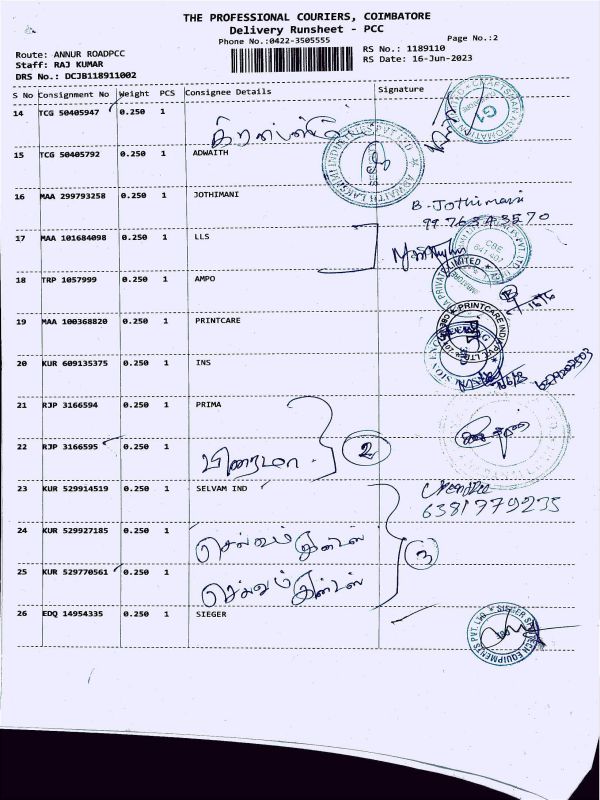 THE PROFESSIONAL COURIERS, COIMBATORE
Delivery Runsheet - PCC
Phone No.:0422-3505555
Page No.:2
Route: ANNUR ROADPCC
RS No.: 1189110
Staff: RAJ KUMAR
RS Date: 16-Jun-2023
DRS No.: DCJB118911002
S No Consignment No Weight PCS Consignee Details Signature
14 TCG 50405947 0.250 1
G1
15 TCG 50405792 0.250 1 ADWAITH
16 MAA 299793258 0.250 1 JOTHIMANI
B. Jothimani
9976343570
17 MAA 101684098 0.250 1 LLS
CBE
641 407
18 TRP 1057999 0.250 1 AMPO
19 MAA 100368820 0.250 1 PRINTCARE
20 KUR 609135375 0.250 1 INS
21 RJP 3166594 0.250 1 PRIMA
22 RJP 3166595 0.250 1 பிரைமா. 2
23 KUR 529914519 0.250 1 SELVAM IND
6381779235
24 KUR 529927185 0.250 1 செல்வம் இன்டஸ்
3
25 KUR 529770561 0.250 1 செல்வம் இன்டஸ்
26 EDQ 14954335 0.250 1 SIEGER